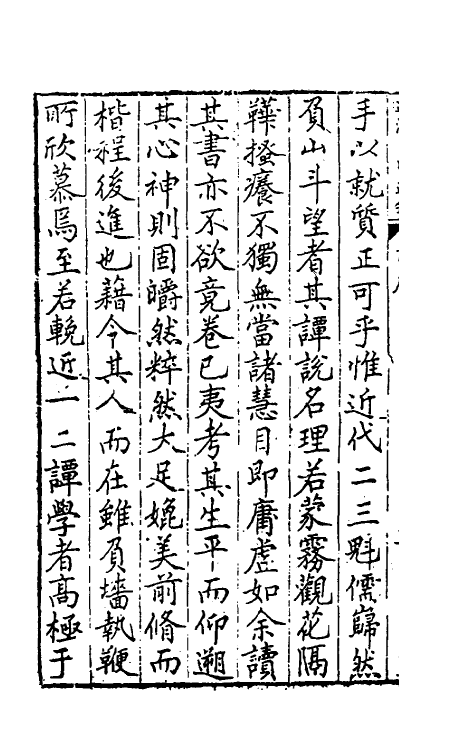 手以就質正可乎惟近代二三魁儒巋然
負山斗望者其譚說名理若蒙霧觀花隔
鞾搔癢不獨無當諸慧目即庸虛如余讀
其書亦不欲竟卷已夷考其生平而仰遡
其心神則固皭然粹然大足媲美前脩而
楷程後進也藉令其人而在雖負墻執鞭
所欣慕焉至若輓近一二譚學者高極于